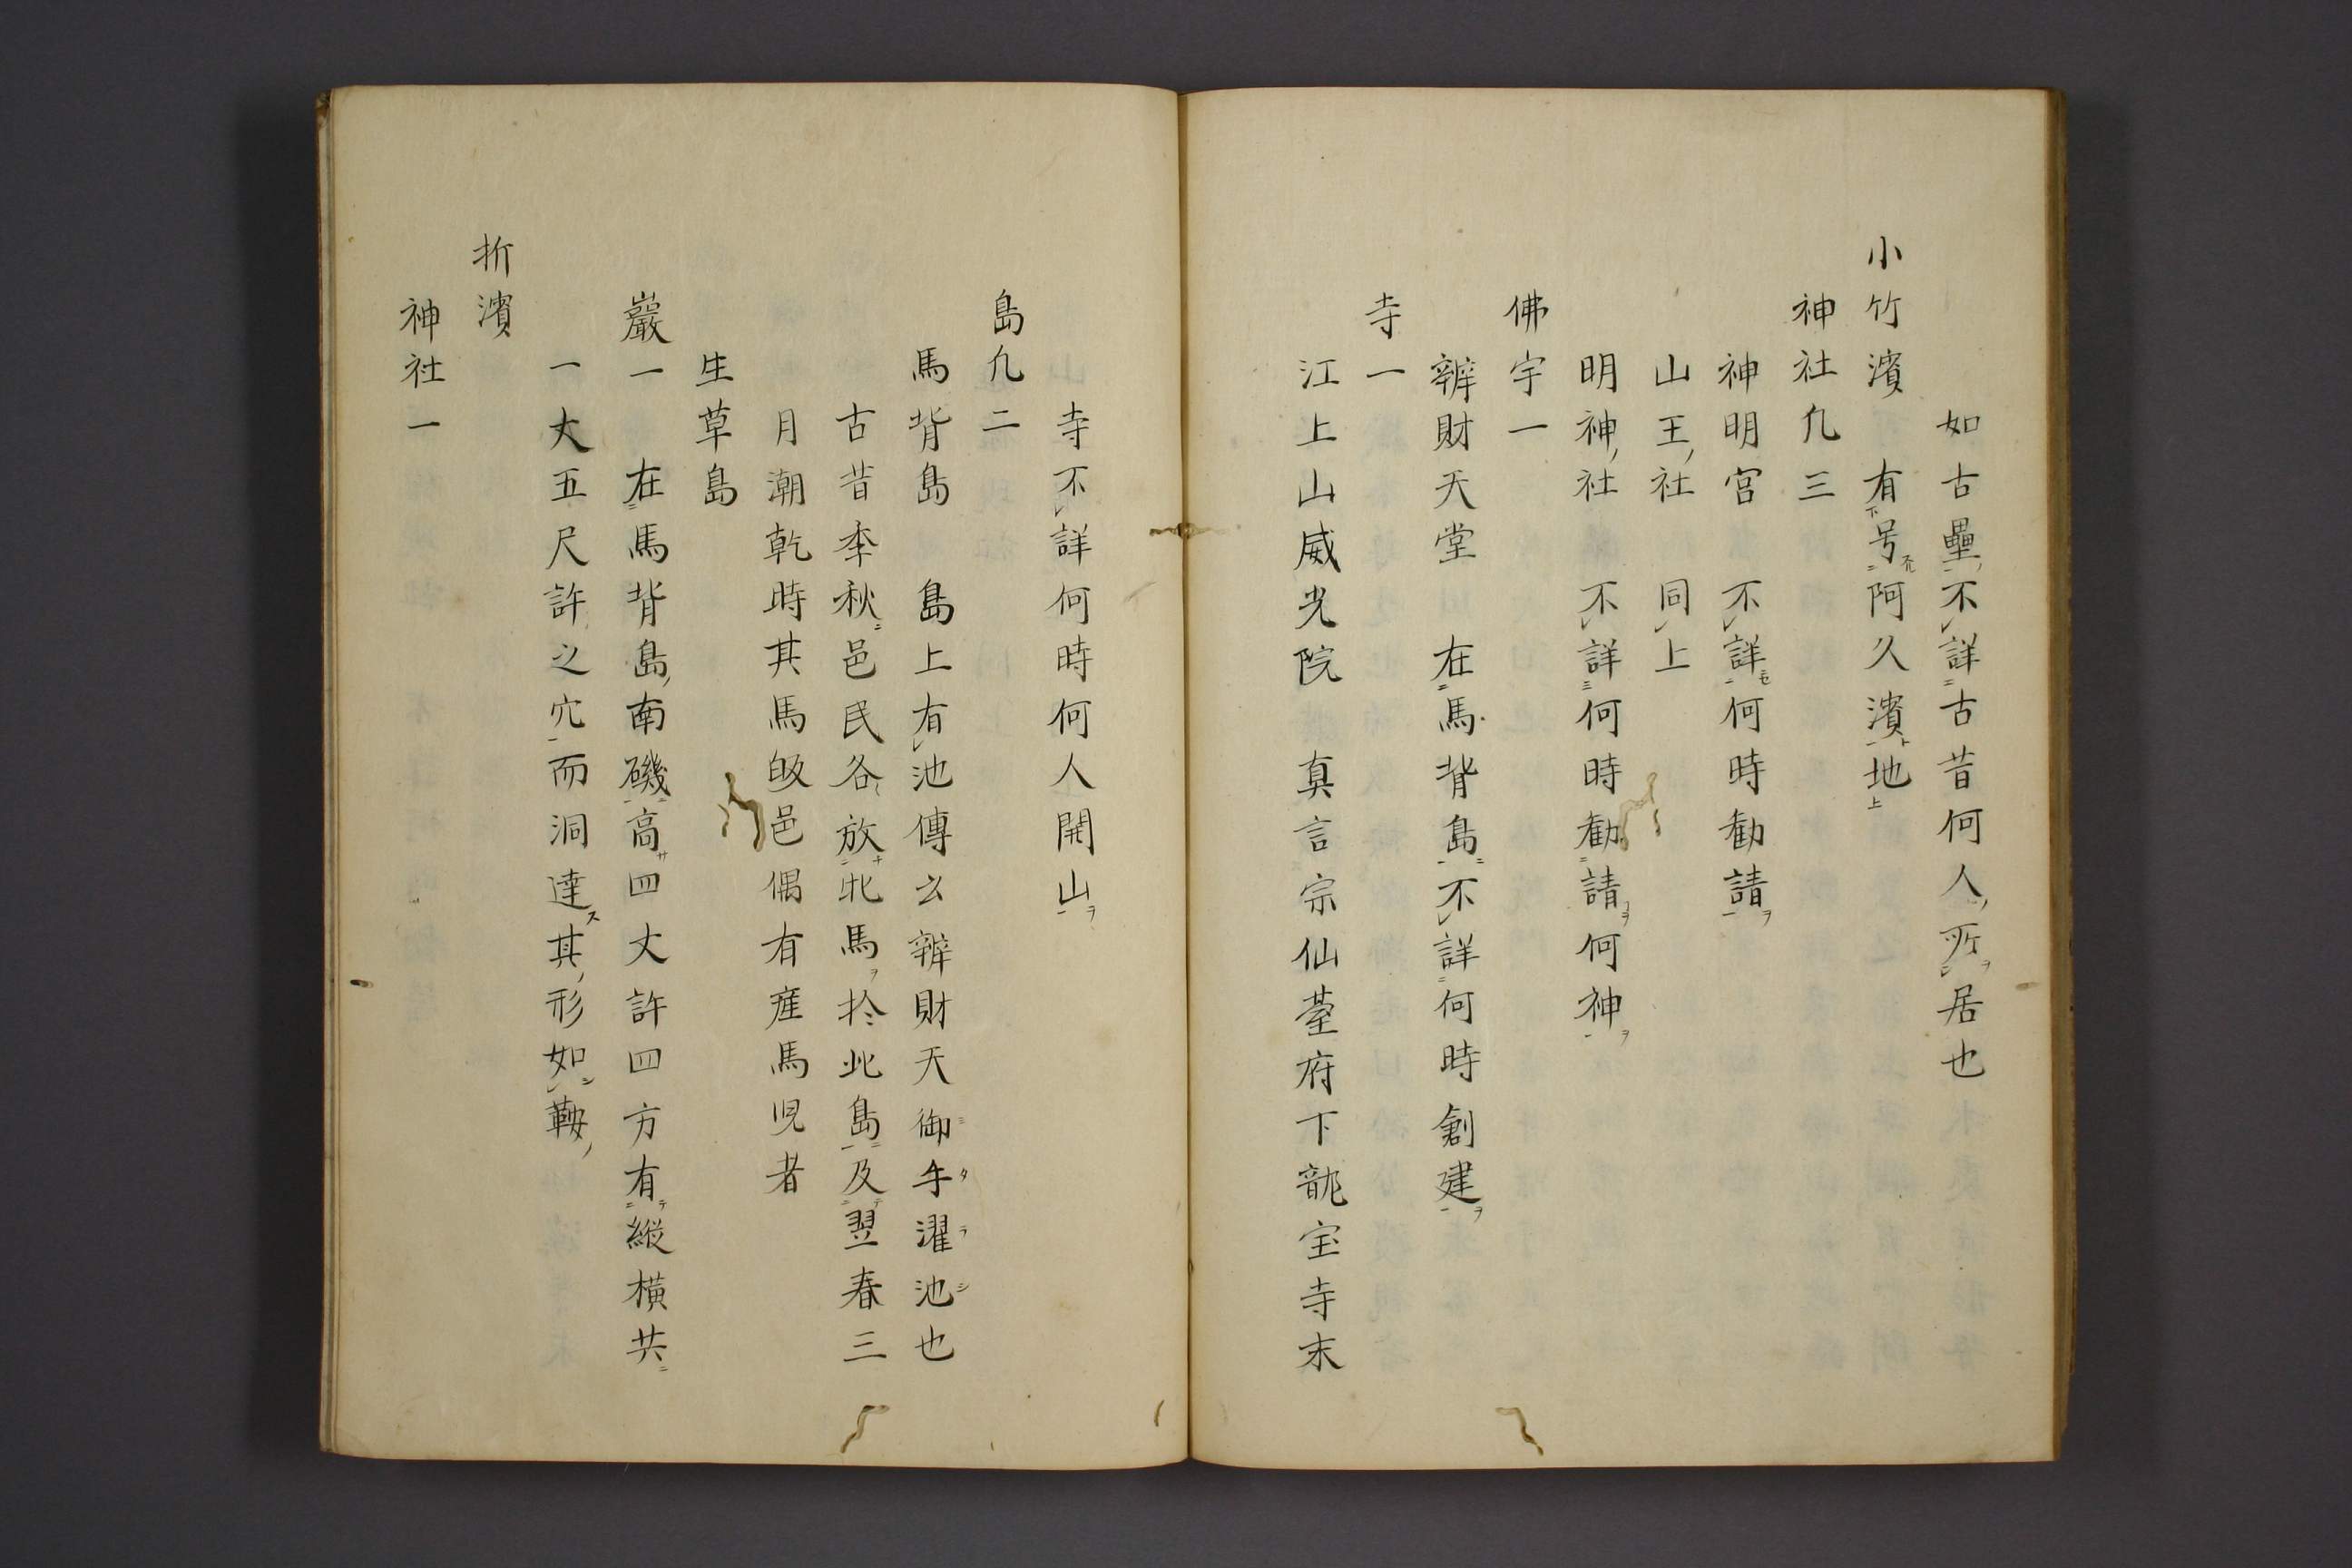 如古壘不詳古昔何人所居也
小竹濱　有号阿久濱地
神社凡三
神明宮　不詳何時勧請
山王社　同上
明神社　不詳何時勧請何神
佛宇一
辨財天堂　在馬背島不詳何時創建
寺一
江上山威光院　真言宗仙䑓府下龍宝寺末
寺不詳何時何人開山
島凡二
馬背島　島上有池傳云辨財天御手濯池也
古昔季秋邑民各放牝馬於此島及翌春三
月潮乾時其馬皈邑偶有産馬児者
生草島
巖一　在馬背島南磯高四丈許四方有縦横共
一丈五尺許之穴而洞達其形如鞍
折濱
神社一